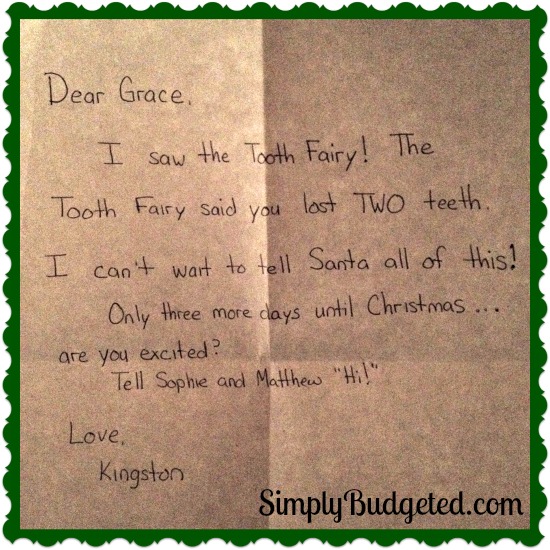 Dear Grace,
I saw the Tooth Fairy! The
Tooth Fairy said you lost TWO teeth.
I can't wait to tell Santa all of this!
Only three more days until Christmas...
are you excited?
Tell Sophie and Matthew "Hi!"
Love,
Kingston
SimplyBudgeted.com